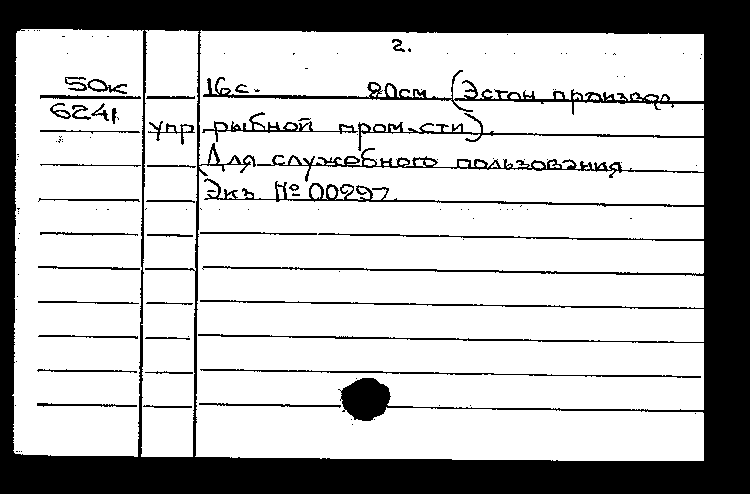 2.
50к 16с. 20см. (Эстон. производ.
6241 упр. рыбной пром-сти).
Для служебного пользования.
Экз. № 00297.